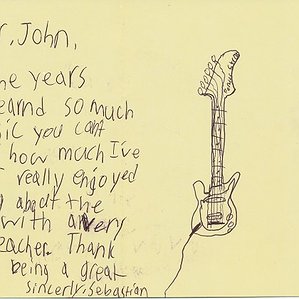 r. John,
he years
earnd so much
sic you cant
how much I've
I really enjoyed
about the
with a very
eacher. Thank
being a great
sincerly, Sebastian